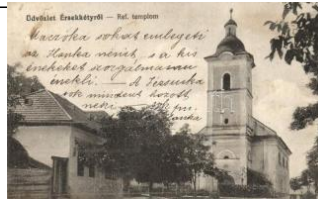 Üdvözlet Érsekkétyről — Ref. templom
Maczóka sokat emlegeti
az Hanka nénit, s a kis
énekeket szorgalmasan
énekli. — A Jézuska
sok mindent hozott
neki